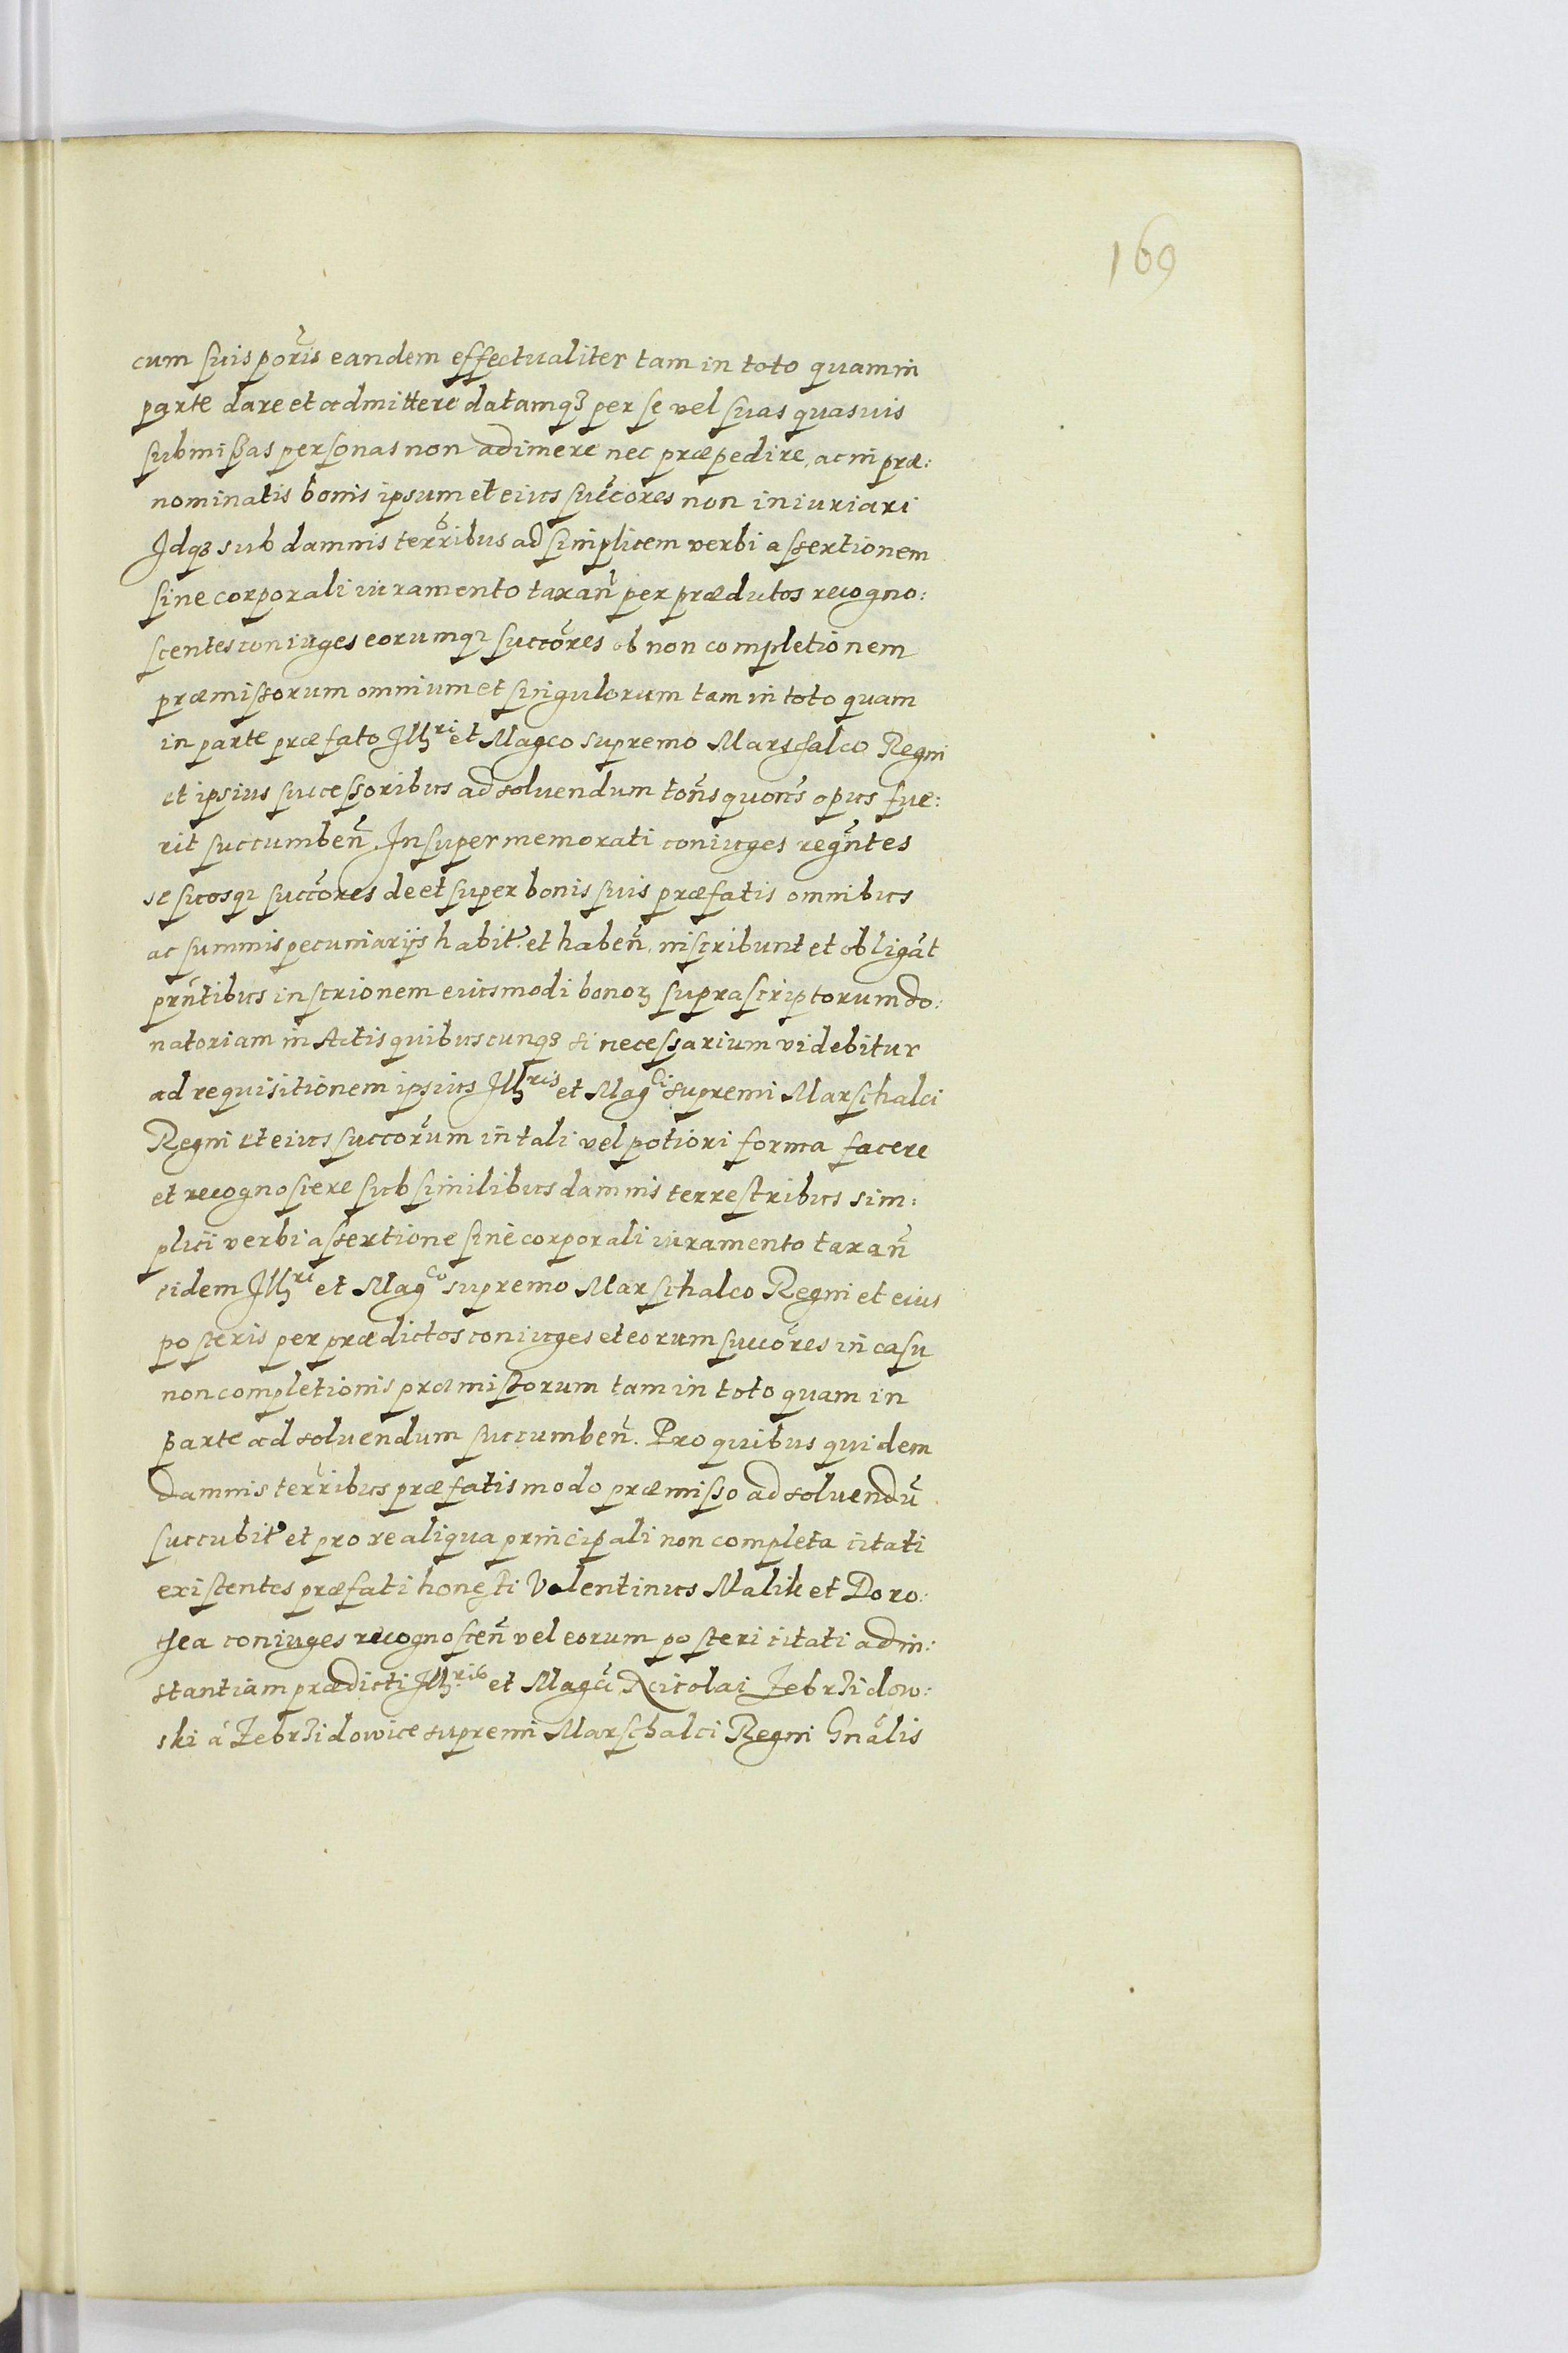 169
cum suis por̃is eandem effectualiter tam in toto quam in
parte dare et admittere datamqȝ per se vel suas quasuis
submissas personas non adimere nec præpedire, ac in præ:
nominatis bonis ipsum et eius succores non iniuriari
Idqȝ sub damnis terribus ad simplicem verbi assertionem
sine corporali iuramento taxañ per prædictos recogno:
scentes coniuges eorumqȝ succores ob non completionem
præmissorum omnium et singulorum tam in toto quam
in parte præfato Illri et Magco supremo Marschalco Regni
et ipsius successoribus ad soluendum tot̃ns quot̃ns opus fue:
rit succumbeñ. Insuper memorati coniuges regñtes
se suosqȝ succores de et super bonis suis præfatis omnibus
ac summis pecuniarijs habit̃. et habeñ. inscribunt et obligãt
prñtibus inscrionem eiusmodi bonoꝝ suprascriptorum do:
natoriam in Actis quibuscunqȝ si necessarium videbitur
ad requisitionem ipsius Illris et Magci supremi Marschalci
Regni et eius succorum in tali vel potiori forma facere
et recognoscere sub similibus damnis terrestribus sim:
plici verbi assertione sine corporali iuramento taxañ
eidem Illri et Magco supremo Marschalco Regni et eius
posteris per prædictos coniuges et eorum succores in casu
non completionis præmissorum tam in toto quam in
parte ad soluendum succumbeñ. Pro quibus quidem
damnis terribus præfatis modo præmisso ad soluendũ
succubit̃ et pro re aliqua principali non completa citati
existentes præfati honesti Valentinus Malik et Doro:
thea coniuges recognosceñ vel eorum posteri citati ad in:
stantiam prædicti Illris et Magci Nicolai Zebrzidow:
ski á Zebrzidowice supremi Marschalci Regni Gnãlis